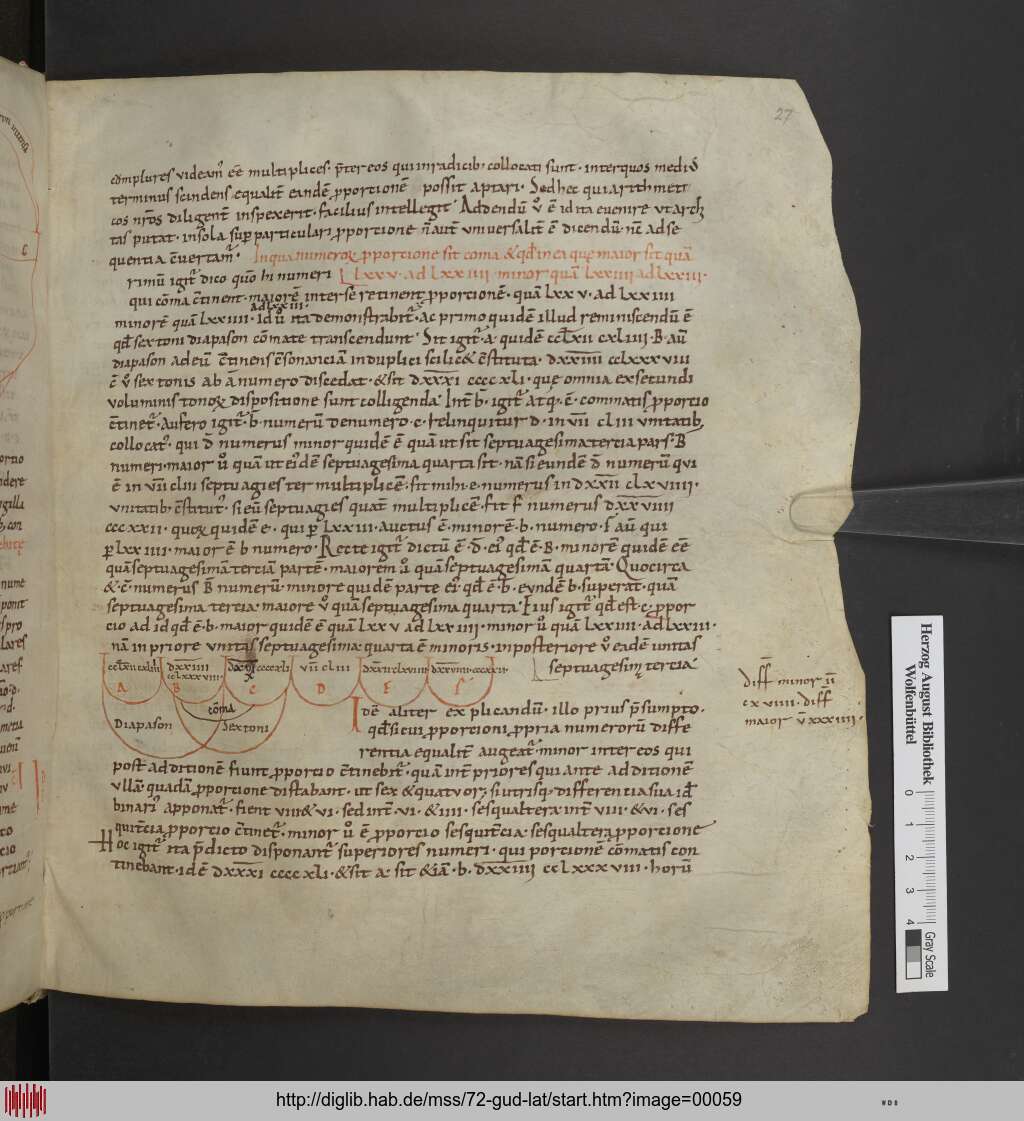 27
complures videam' eē multiplices. p̄ter eos qui in radicib· collocati sunt. inter quos mediꝰ
terminus scindens equalit̄ eandē p̱portionē possit aptari. Sed hec qui arithmeti
cos nr̄os diligent̄ inspexerit. facilius intellegit. Addendū v̊ ē id ita evenire ut archi
tas putat. in sola sup̱particulari p̱portione n̄ aut̄ universalit̄ ē dicendū. nc̄ ad se
quentia c̄vertam'. In qua numeroꝝ p̱portione sit coma & qd̄ in ea que maior sit quā
rimū igit̄ dico qm̄o hi numeri LXXV. ad LXXIIII. minor quā LXXIIII ad LXXIII.
qui cōma c̄tinent. maiorē inter se retinent p̱portionē. quā lxxv. ad lxxiiii
ad lxxiii.
minorē quā lxxiiii. id v̊ ita demonstrabit̄. Ac primo quidē illud reminiscendū ē
qd̄ sex toni diapason cōmate transcendunt. Sit igit̄ .A. quidē cclxii cxliiii. B. aū
diapason ad eū c̄tinens c̄sonantiā in duplici scilic& c̄stituta. dxxiiii cclxxxviii
c̄ v̊ sex tonis ab ā numero discedat. & sit dxxxi ccccxli. que omnia ex secundi
voluminis tonoꝝ dispositione sunt colligenda. Int̄ b̄. igit̄ atq. c̄. commatis p̱portio
c̄tinet̄. Aufero igit̄ .b̄. numerū de numero .c. relinquitur d. in vii cliii unitatib;
collocat'. qui d̄ numerus minor quidē ē quā ut sit septuagesima tertia pars B
numeri. maior v̊ quā ut ei'dē septuagesima quarta sit. nā si eundē d̄ numerū qui
ē in vii cliii septuagies ter multiplicē. fit mihi .e. numerus in dxxii clxviiii.
unitatib· c̄stitut'. si eū septuagies quat̄ multiplicē. fit f numerus dxxviiii
cccxxii. quoꝝ quidē e. qui p̱ lxxiii. auctus ē. minor ē .b. numero. f aū qui
p̱ lxxiiii. maior ē b numero. Recte igit̄ dictū ē .d. ei' qd̄ ē .B. minorē quidē eē
quā septuagesimā tertiā partē. maiorem v̊ quā septuagesimā quartā. Quocirca
& c̄ numerus B numerū. minore quidē parte ei' qd̄ ē .b. eundē b. superat. quā
septuagesima tertia. maiore v̊ quā septuagesima quarta. Eius igit̄ qd̄ est .c. p̱por
cio ad id qd̄ ē .b. maior quidē ē quā lxxv ad lxxiiii. minor v̊ quā lxxiiii. ad lxxiii.
nā in priore unitas septuagesima quarta ē minoris. in posteriore v̊ eadē unitas
septuagesime tertia.
cclxii cxliiii dxxiiii cclxxxviii dxxxi ccccxli vii cliii dxxii clxviiii dxxviiii cccxxii
A B C D E F
cōma
Diapason Sex toni
diff minor īī
cxviiii. diff
maior v̄ xxxiiii.
Idē aliter explicandū. illo prius p̄sumpto.
qd̄ si cui p̱porcioni p̱pria numerorū diffe
rentia equalit̄ augeat̄. minor inter eos qui
post additionē fiunt p̱porcio c̄tinebit̄. quā int̄ priores qui ante additionē
ullā quadā p̱portione distabant. ut sex & quatuor; si utrisq. differentia sua id̄
binari' apponat̄. fient viii & vi. sed int̄ .vi. & iiii. sesqualtera int̄ viii. & vi. ses
quit̄cia p̱portio c̄tinet̄. minor v̊ ē p̱porcio sesquit̄cia. sesqualtera p̱portione
Hoc igit̄ ita p̄dicto disponant̄ superiores numeri. qui portionē cōmatis con
tinebant. idē dxxxi ccccxli. & sit a. sit & iā .b. dxxiiii cclxxxviii. horū
Herzog August Bibliothek
Wolfenbüttel
0 1 2 3 4
Gray Scale
http://diglib.hab.de/mss/72-gud-lat/start.htm?image=00059